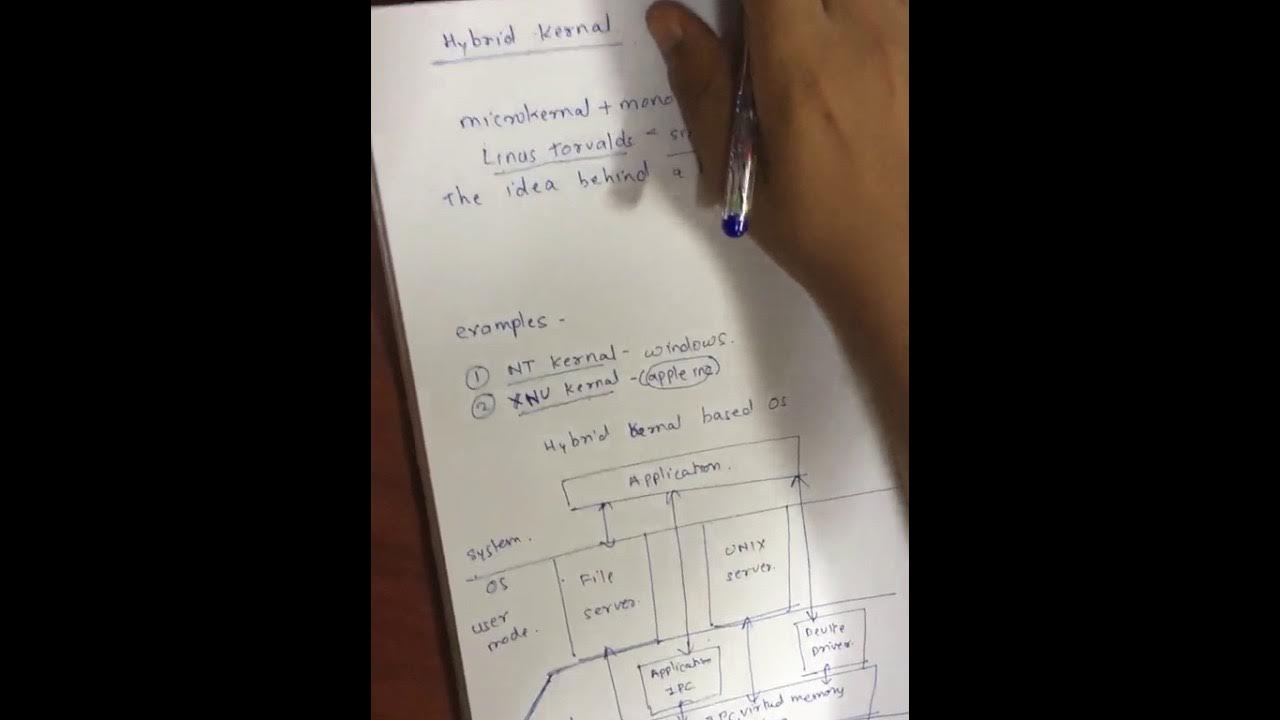 Hybrid Kernal
microkernal + mono
Linus Torvalds -
The idea behind a
examples -
① NT Kernal - windows.
② XNU Kernal - (apple inc)
Hybrid Kernal based OS
Application.
system.
OS
user
mode.
File
server.
UNIX
server.
Device
Driver.
Application
IPC
IPC, virtual memory